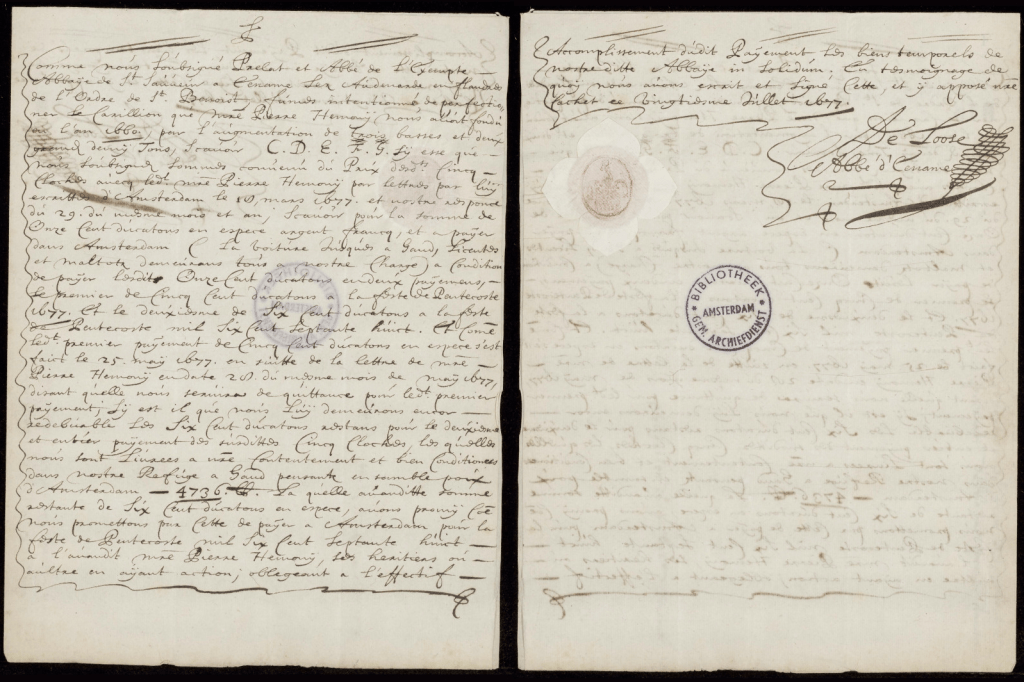 Comme nous soubsigné Prelat et Abbé de l'Exempte
Abbaye de St Sauveur a Ename lez Audenarde en flandres
de l'Ordre de St Benoist, estans intentionné de perfectio-
ner le Carillion que mre Pierre Hemony nous avoit fondu
en l'an 1660, par l'augmentation de trois basses et deux
grand demy tons, scavoir C. D. E. F. G. sy esse que
nous soubsigné sommes convenu du Prix desdts Cincq
Clockes avecq ledt mre Pierre Hemony par lettres par luy
escrittes d'Amsterdam le 18 mars 1677. et nostre responce
du 29. du mesme mois et an, scavoir pour la somme de
Onze Cent ducatons en espece argent francq, et a payer
dans Amsterdam ( la voiture jusques a Gand, licentes
et maltote demeurans tous a nostre Charge) a Condition
de payer lesdits Onze Cent ducatons en deux payemens,
le premier de Cincq Cent ducatons a la feste de Pentecoste
1677. Et le deuxiesme de Six Cent ducatons a la feste
de Pentecoste mil Six Cent septante huict. Et Comme
ledt premier payement de Cincq Cent ducatons en espece s'est
faict le 25. may 1677. en suitte de la lettre de mre
Pierre Hemony en date 28. du mesme mois de may 1677,
disant quelle nous servira de quittance pour ledt premier
payement, sy est il que nous luy demeurons encor
redevable les Six Cent ducatons restans pour le deuxiesme
et entier payement des susdittes Cincq Clockes, les quelles
nous sont livrees a nre Contentement et bien Conditionees
dans nostre Refuge a Gand pesante en samble poix
d'Amsterdam - 4736. lb. La quelle avanditte somme
restante de Six Cent ducatons en espece, avons premy Coe
nous promettons par Cette de payer a Amsterdam pour la
feste de Pentecoste mil Six Cent septante huict
a l'avandit mre Pierre Hemony, ses heritiers ou
aultre en ayant action; oblegeant a l'effectif
Accomplissement dudit Payement les biens temporels de
nostre ditte Abbaye in solidum; En tesmoignage de
quoy nous avons escrit et signé Cette, et y apposé nre
Cachet ce Vingtiesme Jullet 1677.
De Loose
Abbé d'Ename
BIBLIOTHEEK
AMSTERDAM
GEM. ARCHIEFDIENST